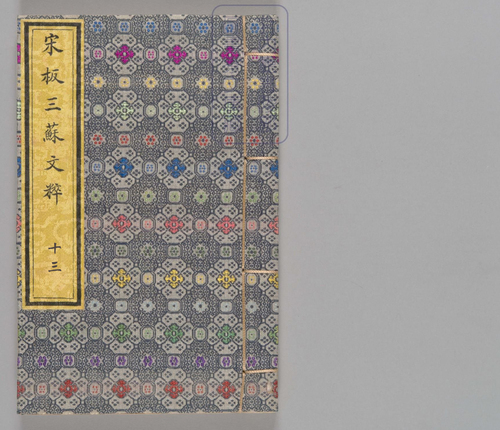 宋板三蘇文粹 十三